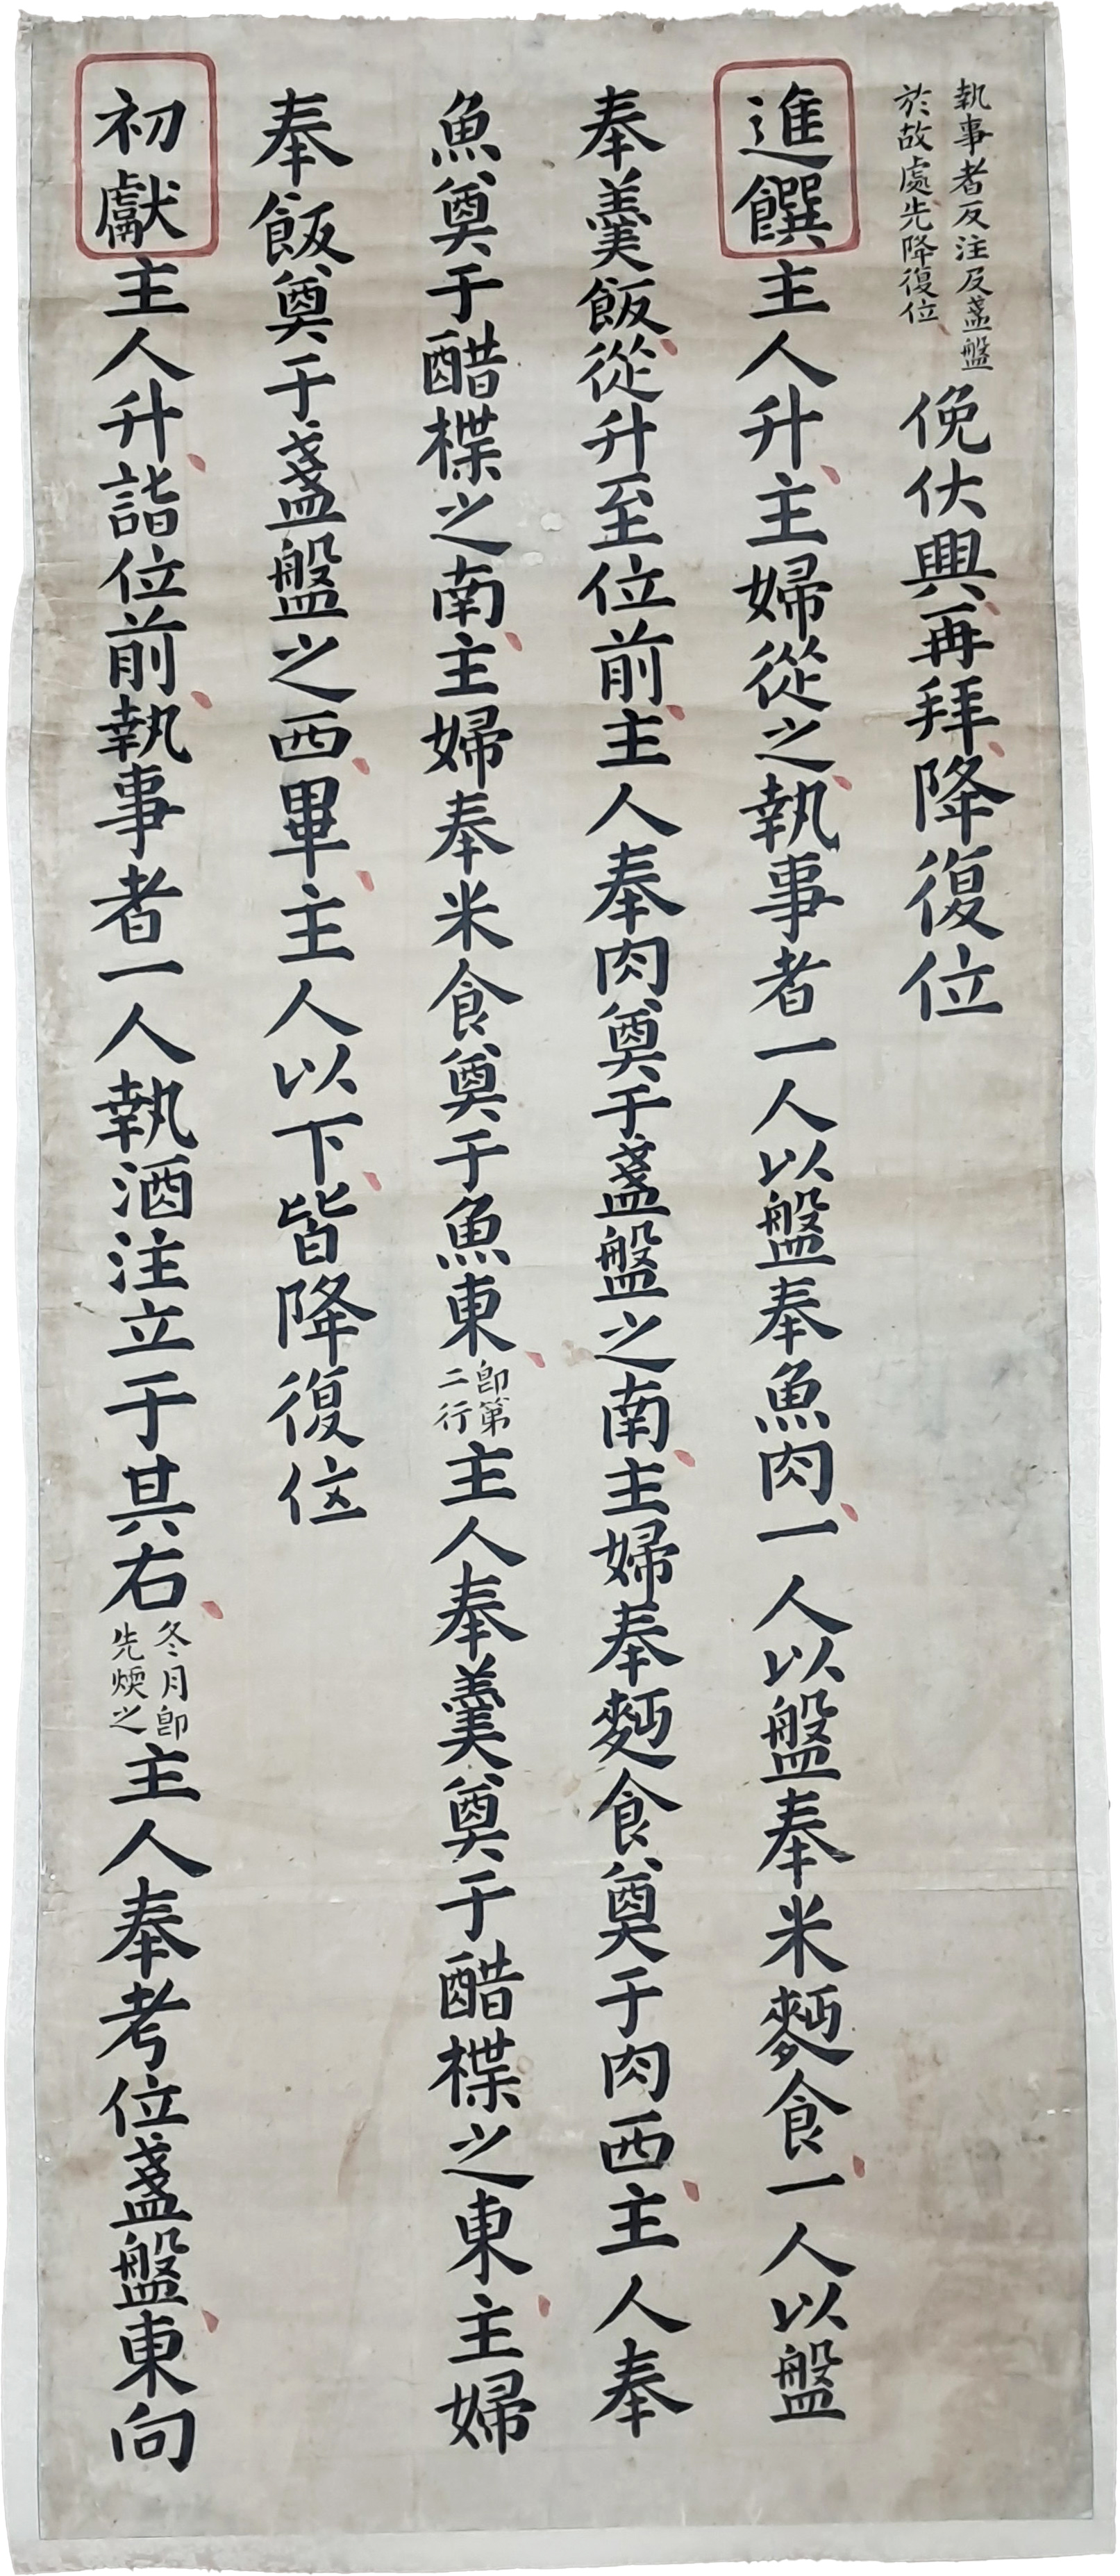 執事者反注及盞盤
於故處先降復位
俛伏興再拜降復位
進饌主人升主婦從之執事者一人以盤奉魚肉一人以盤奉米麪食一人以盤
奉羹飯從升至位前主人奉肉奠于盞盤之南主婦奉麪食奠于肉西主人奉
魚奠于醋楪之南主婦奉米食奠于魚東即第二行主人奉羹奠于醋楪之東主婦
奉飯奠于盞盤之西畢主人以下皆降復位
初獻主人升詣位前執事者一人執酒注立于其右冬月即先煗之主人奉考位盞盤東向